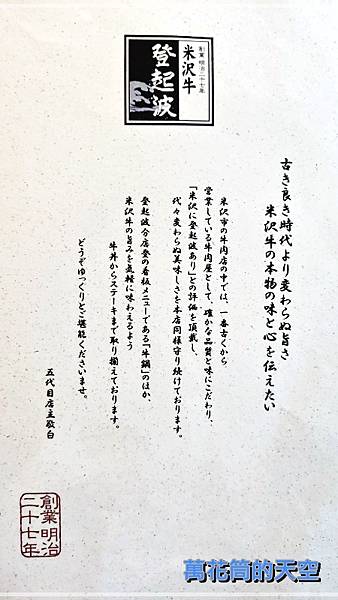 創業 明治二十七年
米沢牛
登起波
古き良き時代より変わらぬ旨さ
米沢牛の本物の味と心を伝えたい
米沢市の牛肉店の中では、一番古くから
営業している牛肉屋として、確かな品質と味にこだわり、
「米沢に登起波あり」との評価を頂戴し、
代々変わらぬ美味しさを本店同様守り続けております。
登起波分店登の看板メニューである「牛鍋」のほか、
米沢牛の旨みを気軽に味わえるよう
牛丼からステーキまで取り揃えております。
どうぞゆっくりとご堪能くださいませ。
五代目店主敬白
創業明治
二十七年
萬花筒的天空